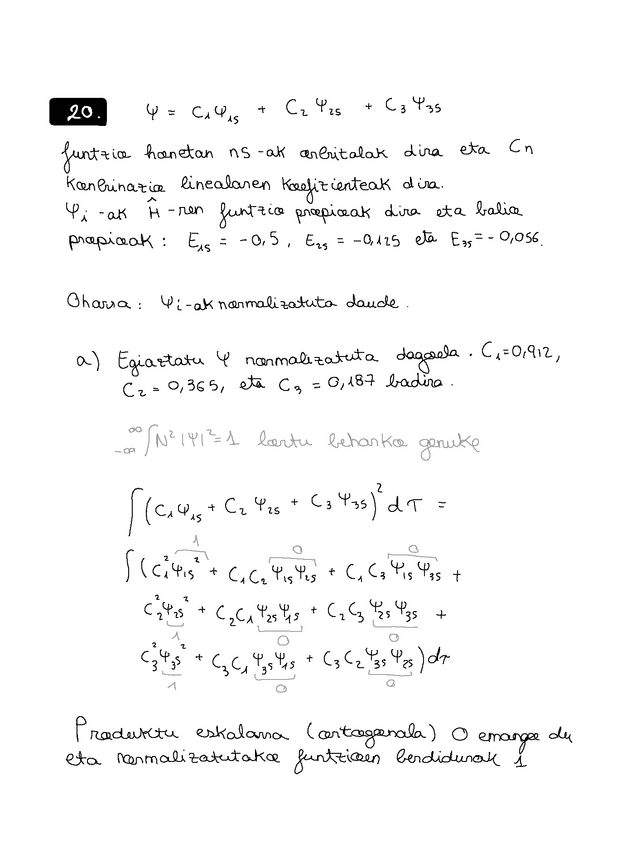 20. Ψ = C₁Ψ₁s + C₂Ψ₂s + C₃Ψ₃s
funtzio honetan ns-ak orbitalak dira eta Cn
konbinazio linealaren koefizienteak dira.
Ψi-ak Ĥ-ren funtzio propioak dira eta balio
propioak : E₁s = -0,5 , E₂s = -0,125 eta E₃s = -0,056.
Oharra : Ψi-ak normalizatuta daude .
a) Egiaztatu Ψ normalizatuta dagoela . C₁=0,912,
C₂ = 0,365, eta C₃ = 0,187 badira .
-∞ ∫^∞ N² |Ψ|² = 1 lortu beharko genuke
∫ (C₁Ψ₁s + C₂Ψ₂s + C₃Ψ₃s)² dτ =
1 0 0
∫ (C₁²Ψ₁s² + C₁C₂Ψ₁sΨ₂s + C₁C₃Ψ₁sΨ₃s +
C₂²Ψ₂s² + C₂C₁Ψ₂sΨ₁s + C₂C₃Ψ₂sΨ₃s +
1 0 0
C₃²Ψ₃s² + C₃C₁Ψ₃sΨ₁s + C₃C₂Ψ₃sΨ₂s) dτ
1 0 0
Produktu eskalarra (ortogonala) 0 emango du
eta normalizatutako funtzioen berdidurak 1